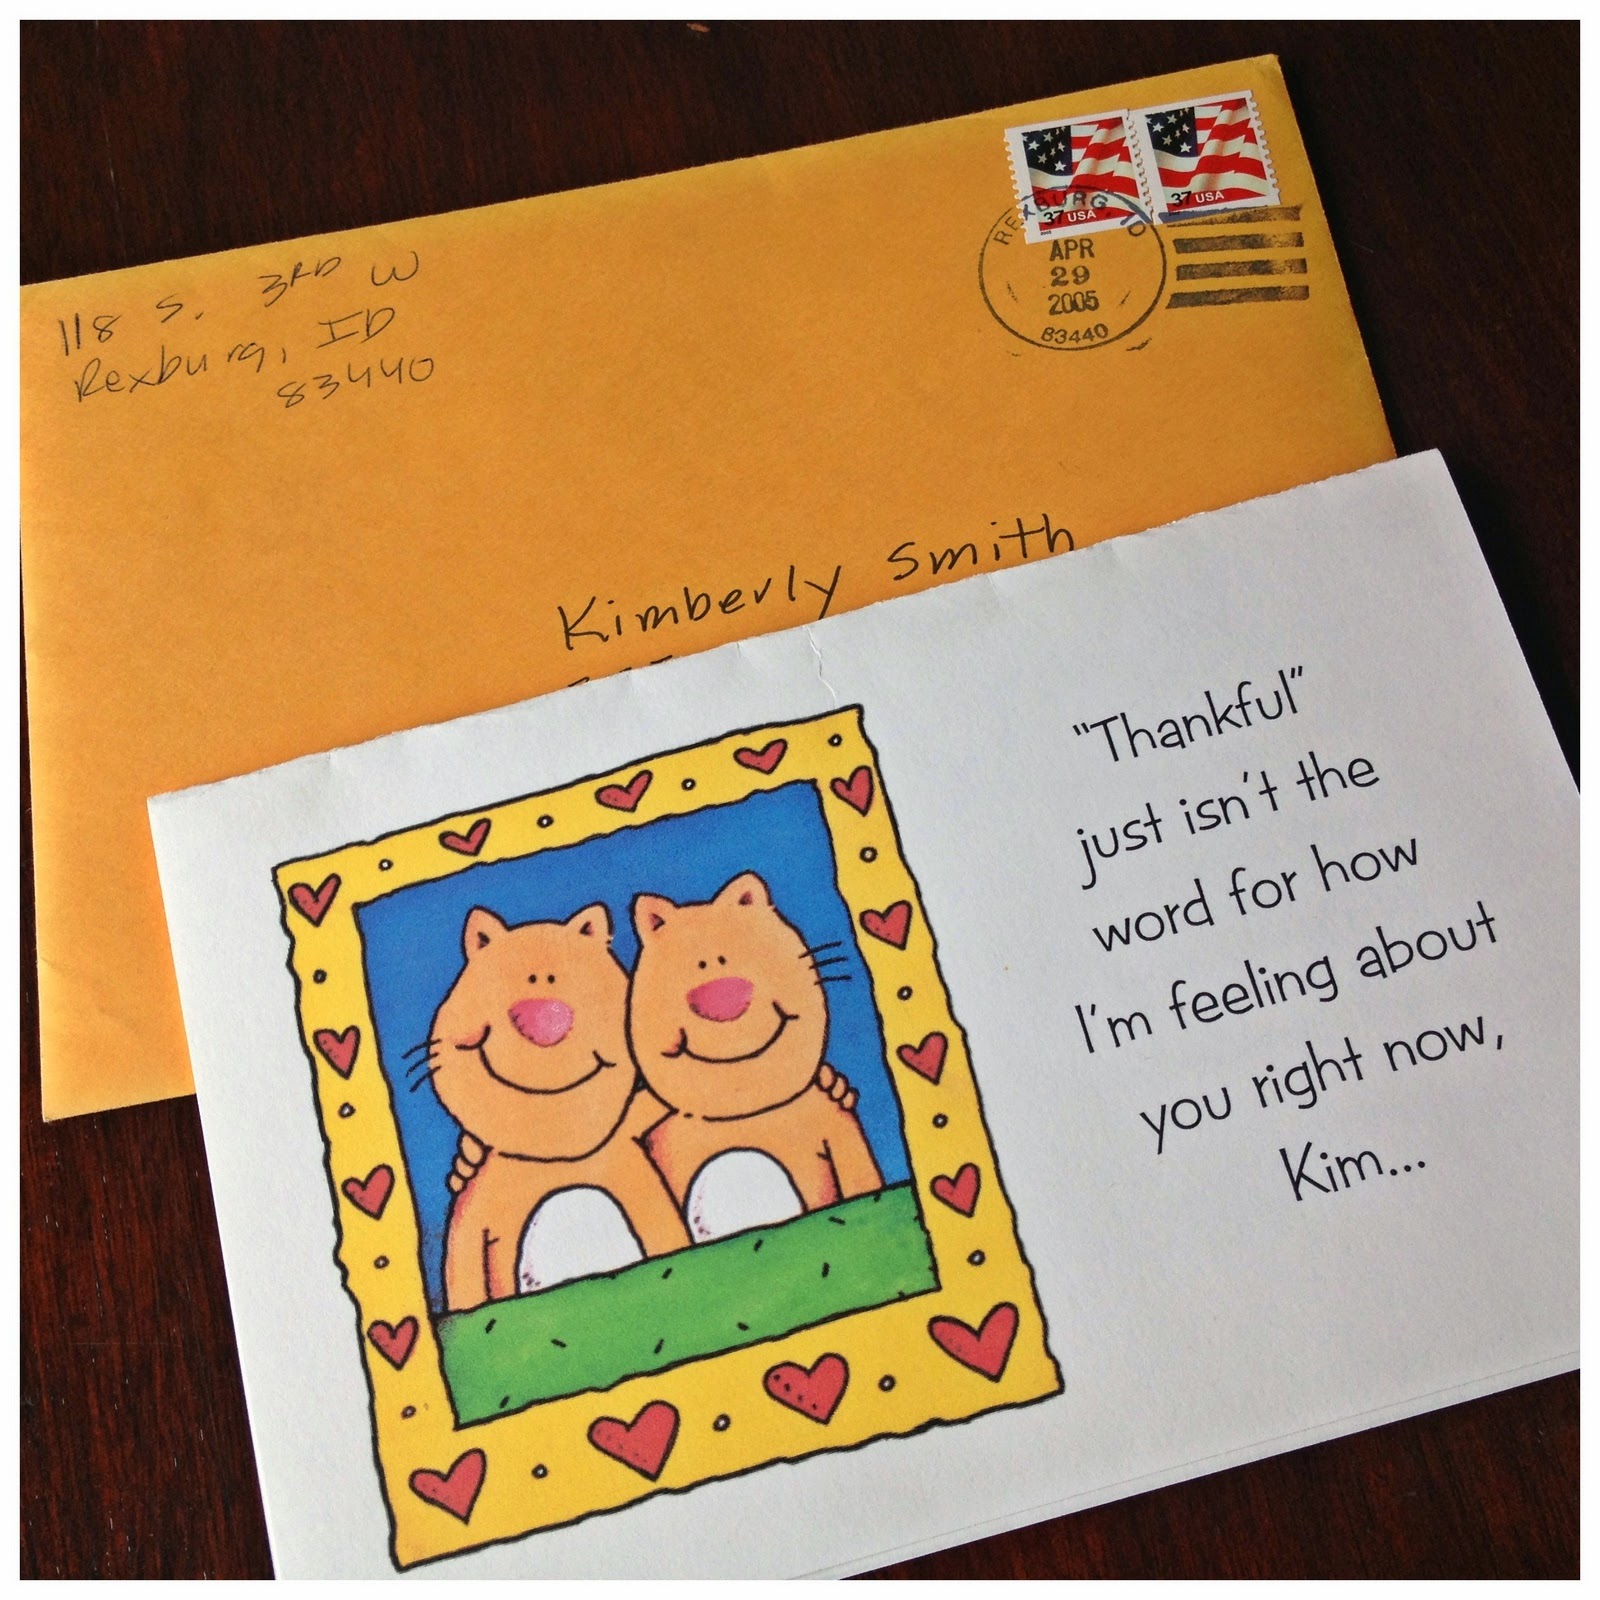 37 USA
37 USA
REXBURG, ID
APR
29
2005
83440
118 S. 3RD W
Rexburg, ID
83440
Kimberly Smith
"Thankful"
just isn't the
word for how
I'm feeling about
you right now,
Kim...